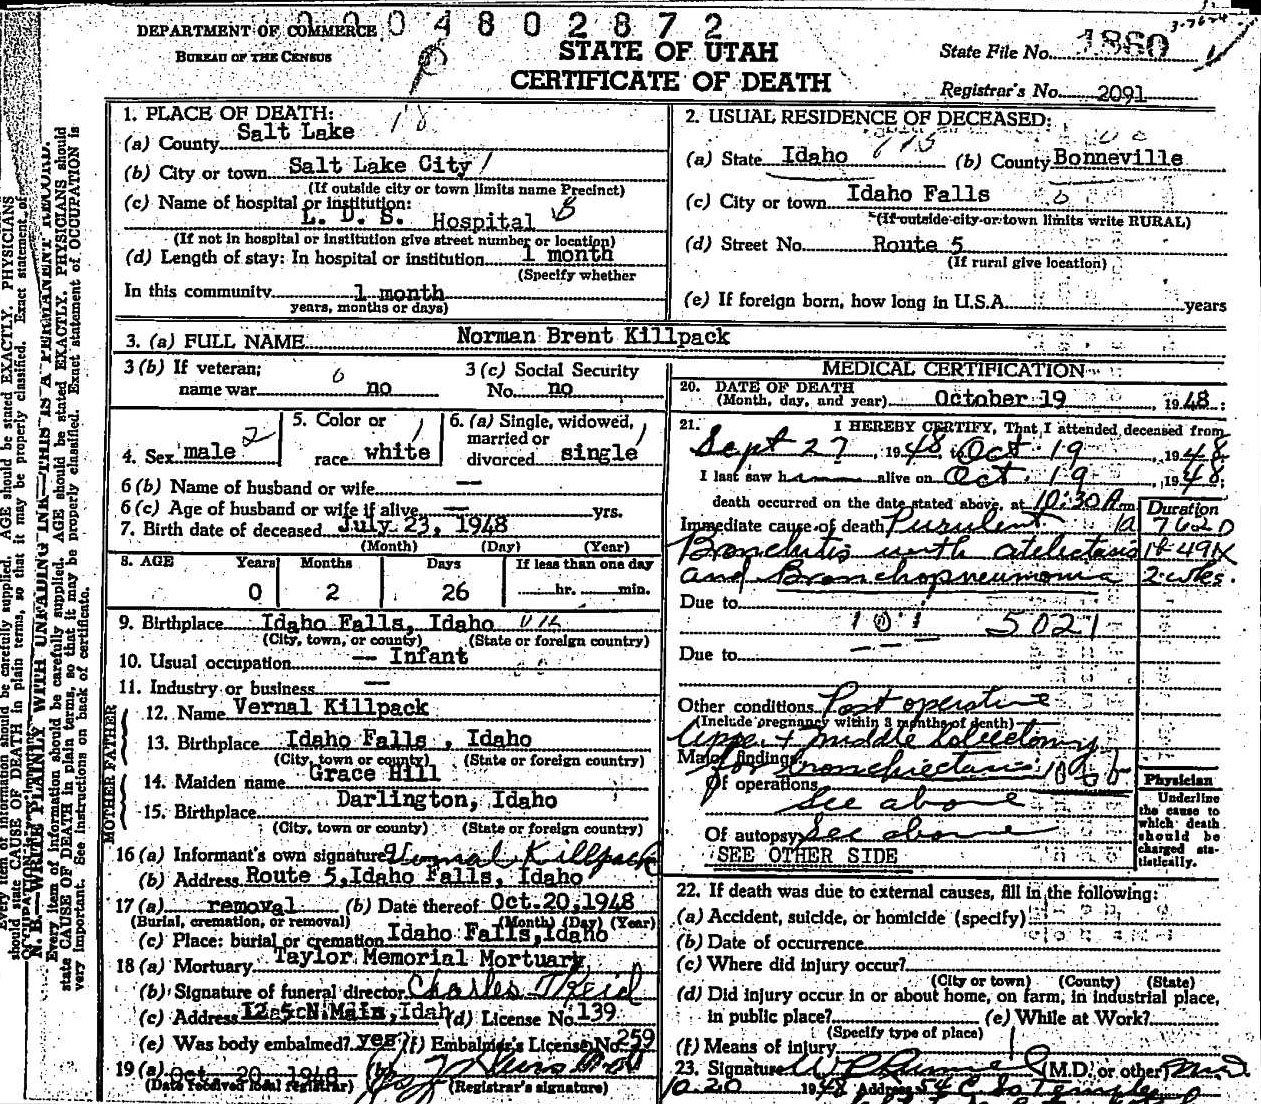 0004802872
DEPARTMENT OF COMMERCE
BUREAU OF THE CENSUS
STATE OF UTAH
CERTIFICATE OF DEATH
State File No. 1860
Registrar's No. 2091
1. PLACE OF DEATH:
(a) County Salt Lake 18
(b) City or town Salt Lake City
(If outside city or town limits name Precinct)
(c) Name of hospital or institution:
L. D. S. Hospital B
(If not in hospital or institution give street number or location)
(d) Length of stay: In hospital or institution 1 month
(Specify whether
In this community 1 month
years, months or days)
2. USUAL RESIDENCE OF DECEASED:
(a) State Idaho (b) County Bonneville
(c) City or town Idaho Falls
(If outside city or town limits write RURAL)
(d) Street No. Route 5
(If rural give location)
(e) If foreign born, how long in U.S.A. years
3. (a) FULL NAME Norman Brent Killpack
3 (b) If veteran; name war no
3 (c) Social Security No. no
4. Sex male 2
5. Color or race white 1
6. (a) Single, widowed, married or divorced single 1
6 (b) Name of husband or wife —
6 (c) Age of husband or wife if alive — yrs.
7. Birth date of deceased July 23, 1948
(Month) (Day) (Year)
8. AGE Years Months Days If less than one day
0 2 26 hr. min.
9. Birthplace Idaho Falls, Idaho
(City, town, or county) (State or foreign country)
10. Usual occupation -- Infant
11. Industry or business —
FATHER
12. Name Vernal Killpack
13. Birthplace Idaho Falls , Idaho
(City, town or county) (State or foreign country)
MOTHER
14. Maiden name Grace Hill
15. Birthplace Darlington, Idaho
(City, town or county) (State or foreign country)
16 (a) Informant's own signature Vernal Killpack
(b) Address Route 5,Idaho Falls, Idaho
17 (a) removal (b) Date thereof Oct.20,1948
(Burial, cremation, or removal) (Month) (Day) (Year)
(c) Place: burial or cremation Idaho Falls,Idaho
18 (a) Mortuary Taylor Memorial Mortuary
(b) Signature of funeral director Charles T Reid
(c) Address N.Main,Idah (d) License No. 139
(e) Was body embalmed? yes (f) Embalmer's License No. 259
19 (a) Oct. 20 1948 (b)
(Date received local registrar) (Registrar's signature)
MEDICAL CERTIFICATION
20. DATE OF DEATH
(Month, day, and year) October 19 , 1948 :
21. I HEREBY CERTIFY, That I attended deceased from
Sept 27, 1948 to Oct 19, 1948
I last saw h alive on Oct 19, 1948;
death occurred on the date stated above, at 10:30 A m
Duration
Immediate cause of death Purulent 7620
Bronchitis with atelectasis
and Bronchopneumonia 2 wks.
Due to
5021
Due to
Other conditions Post operative
(Include pregnancy within 3 months of death)
Upper + middle Lobectomy
Major findings: for bronchiectasis
Of operations
See above
Of autopsy See above
SEE OTHER SIDE
Physician
Underline the cause to which death should be charged statistically.
22. If death was due to external causes, fill in the following:
(a) Accident, suicide, or homicide (specify)
(b) Date of occurrence
(c) Where did injury occur?
(City or town) (County) (State)
(d) Did injury occur in or about home, on farm, in industrial place,
in public place? (e) While at Work?
(Specify type of place)
(f) Means of injury
23. Signature (M.D. or other) M.D.
10-20 1948 Address 54 So Temple
N. B.—WRITE PLAINLY WITH UNFADING INK—THIS IS A PERMANENT RECORD.
Every item of information should be carefully supplied. AGE should be stated EXACTLY. PHYSICIANS should
state CAUSE OF DEATH in plain terms, so that it may be properly classified. Exact statement of OCCUPATION is
very important. See instructions on back of certificate.